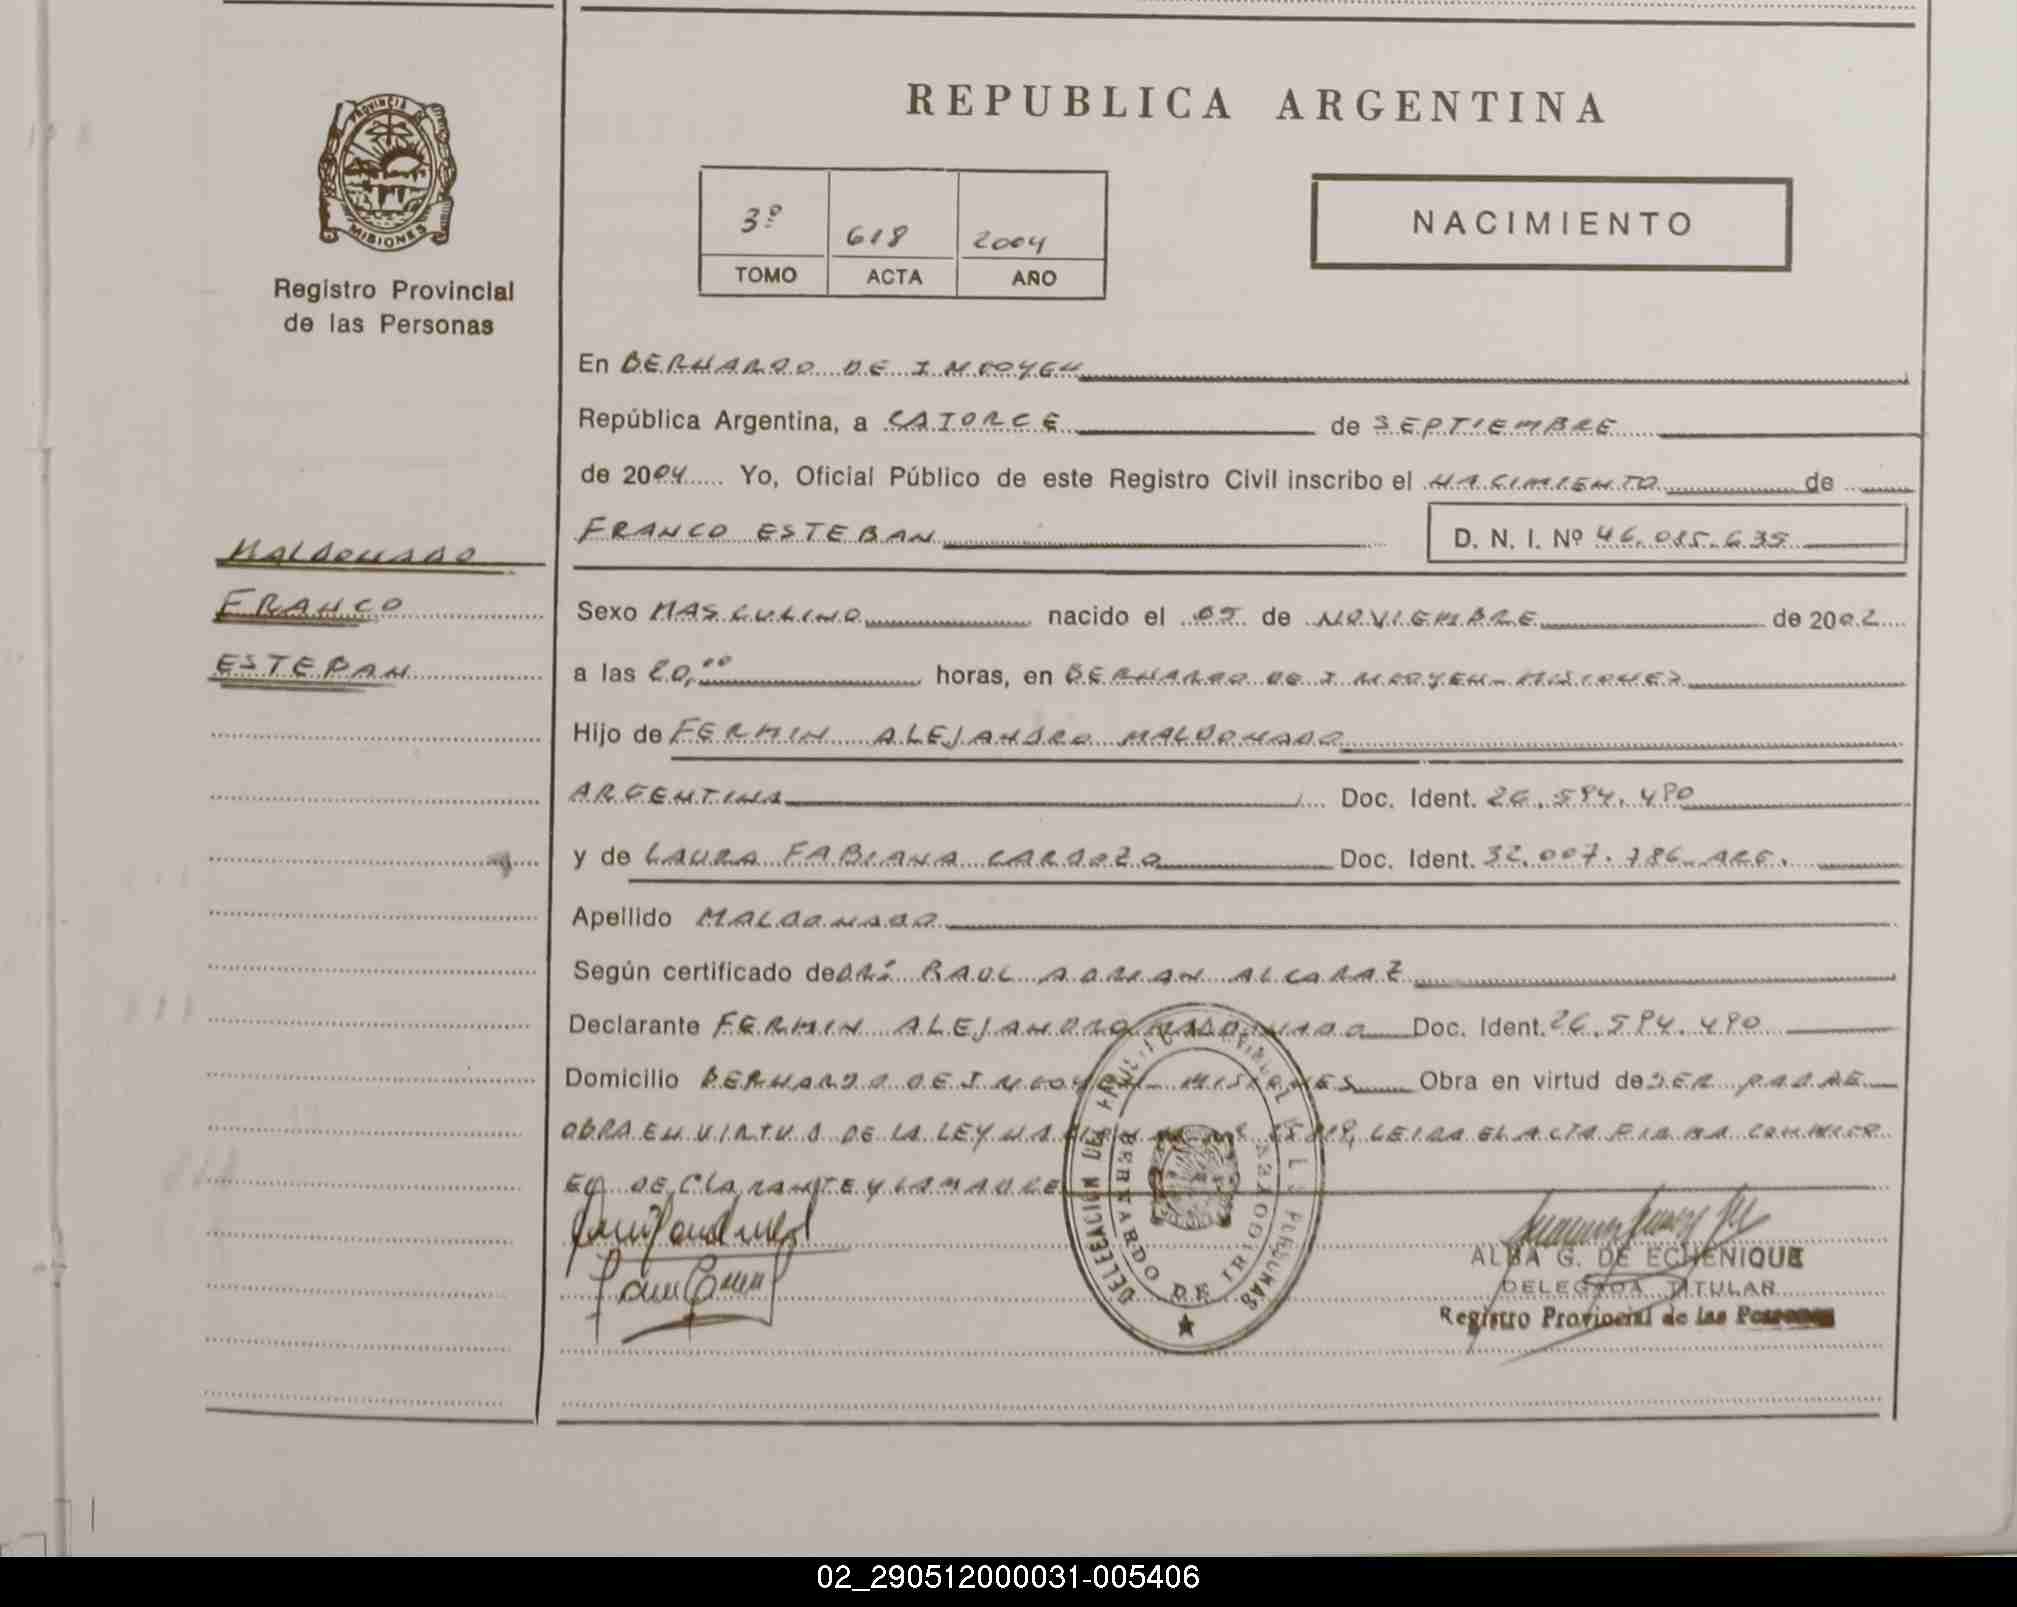 PROVINCIA DE
MISIONES
Registro Provincial
de las Personas
MALDONADO
FRANCO
ESTEBAN
REPUBLICA ARGENTINA
3º 618 2004
TOMO ACTA AÑO
NACIMIENTO
En BERNARDO DE IRIGOYEN
República Argentina, a CATORCE de SEPTIEMBRE
de 2004 Yo, Oficial Público de este Registro Civil inscribo el NACIMIENTO de
FRANCO ESTEBAN D. N. I. Nº 46.085.635
Sexo MASCULINO nacido el 05 de NOVIEMBRE de 2002
a las 20,00 horas, en BERNARDO DE IRIGOYEN - MISIONES
Hijo de FERMIN ALEJANDRO MALDONADO
ARGENTINA Doc. Ident. 26.594.490
y de LAURA FABIANA CARDOZO Doc. Ident. 32.007.786 ARG.
Apellido MALDONADO
Según certificado de DR. RAUL ADRIAN ALCARAZ
Declarante FERMIN ALEJANDRO MALDONADO Doc. Ident. 26.594.490
Domicilio BERNARDO DE IRIGOYEN - MISIONES Obra en virtud de SER PADRE
OBRA EN VIRTUD DE LA LEY LEIDA EL ACTA FIRMA CONMIGO
EL DECLARANTE Y LA MADRE
DELEGACION DEL REGISTRO PROVINCIAL DE LAS PERSONAS
BERNARDO DE IRIGOYEN
ALBA G. DE ECHENIQUE
DELEGADA TITULAR
Registro Provincial de las Personas
02_290512000031-005406